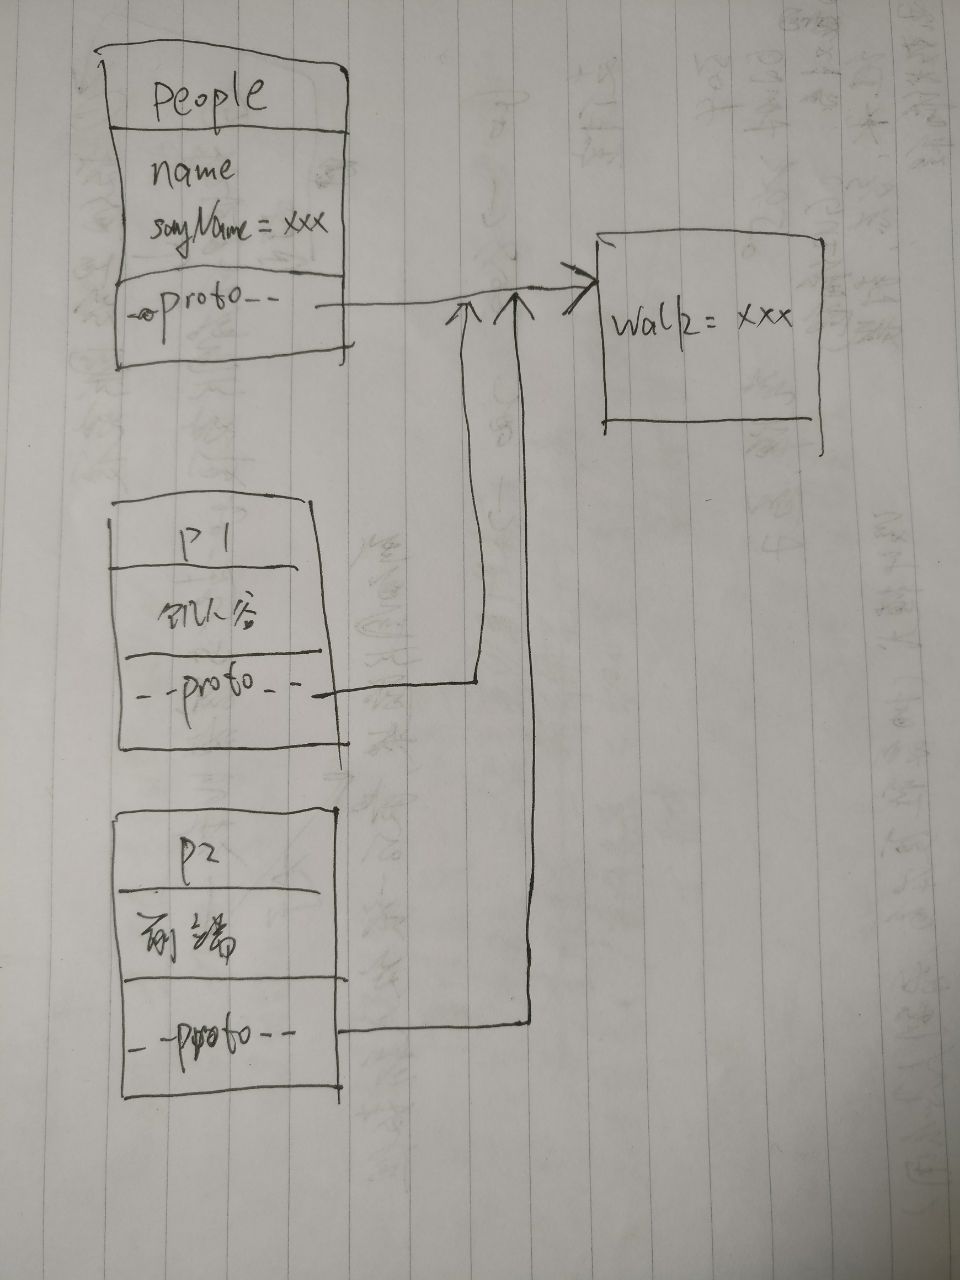 people
name
sayName = xxx
--proto--
walk = xxx
p1
饥人谷
--proto--
p2
前端
--proto--